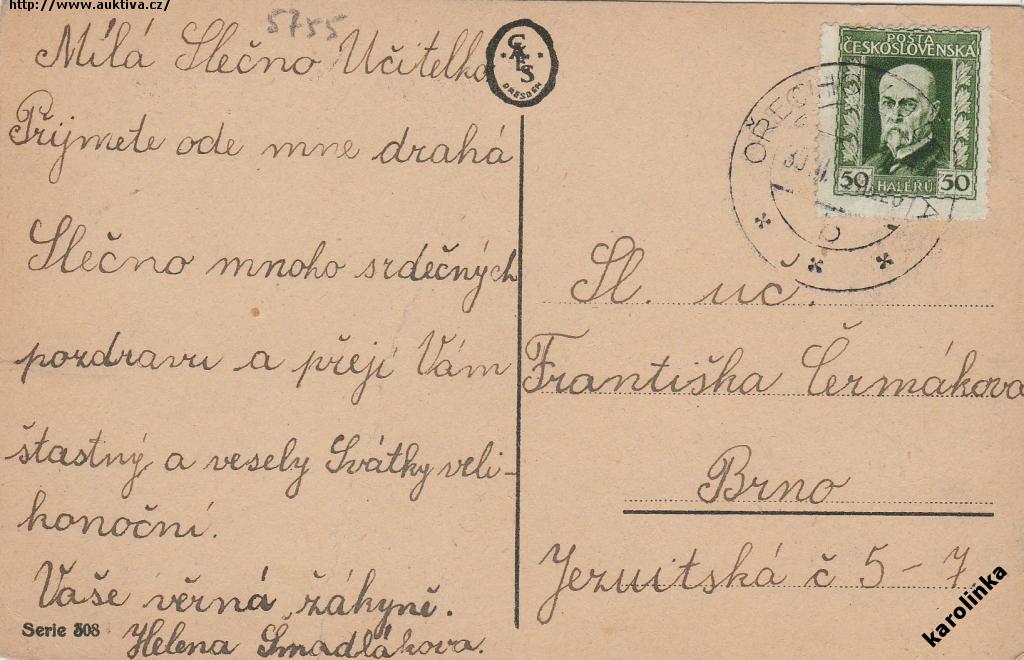 http://www.auktiva.cz/
5755
Mílá Slečno Učitelko
Přijmete ode mne drahá
Slečno mnoho srdečných
pozdravu a přeji Vám
štastný a vesely Svátky veli-
konoční.
Vaše věrná žákyně.
Helena Šmadlákova.
Serie 308
DRESDEN
POŠTA
ČESKOSLOVENSKÁ
50 HALÉŘŮ 50
Sl. uc.
Františka Čermákova
Brno
Jezuitská č 5-7
karolinka